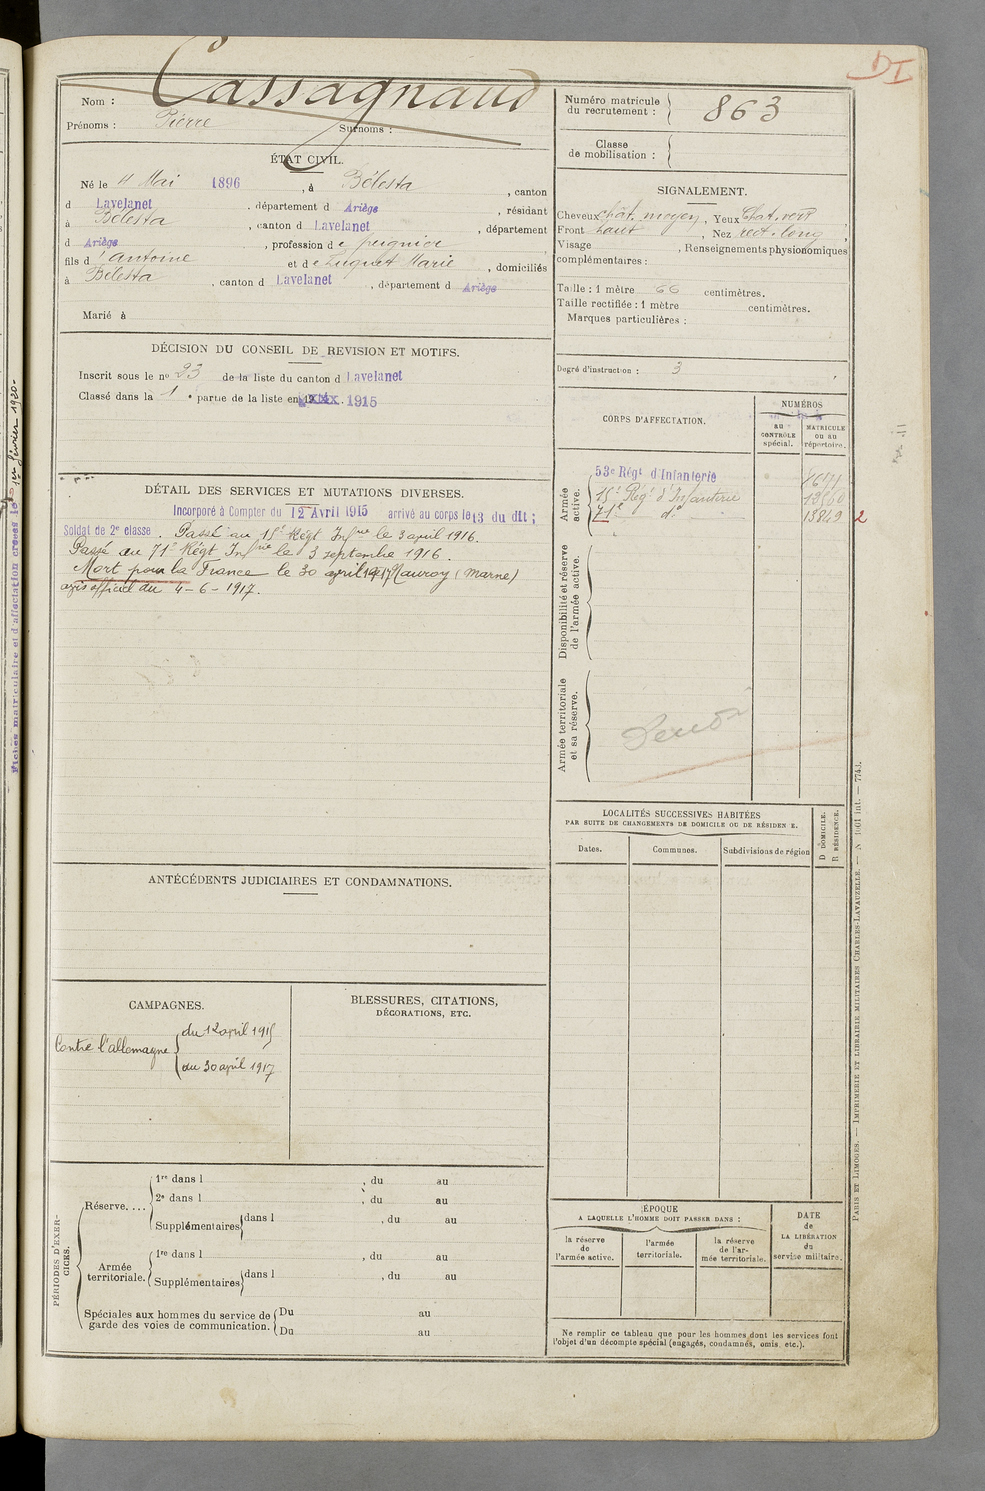 DI
Cassagnaud
Nom :
Prénoms : Pierre Surnoms :
Numéro matricule
du recrutement : 863
Classe
de mobilisation :
ÉTAT CIVIL.
Né le 11 Mai 1896, à Bélesta, canton
d Lavelanet, département d Ariège, résidant
à Bélesta, canton d Lavelanet, département
d Ariège, profession de peignier
fils d'Antoine et de Luguet Marie, domiciliés
à Bélesta, canton d Lavelanet, département d Ariège
Marié à
SIGNALEMENT.
Cheveux chât. moyen, Yeux Chat. vert
Front haut, Nez rect. long,
Visage, Renseignements physionomiques
complémentaires :
Taille : 1 mètre 66 centimètres.
Taille rectifiée : 1 mètre centimètres.
Marques particulières :
Degré d'instruction : 3
DÉCISION DU CONSEIL DE REVISION ET MOTIFS.
Inscrit sous le no 23 de la liste du canton d Lavelanet
Classé dans la 1e partie de la liste en 1915
DÉTAIL DES SERVICES ET MUTATIONS DIVERSES.
Incorporé à Compter du 12 Avril 1915 arrivé au corps le 13 du dit ;
Soldat de 2e classe. Passé au 15e Régt Infrie le 3 avril 1916.
Passé au 71e Régt Infrie le 3 septembre 1916.
Mort pour la France le 30 avril 1917 Nauroy (Marne)
avis officiel du 4-6-1917.
CORPS D'AFFECTATION.
NUMÉROS
au
CONTRÔLE
spécial.
MATRICULE
ou au
répertoire.
Armée
active.
53e Régt d'Infanterie
15e Régt d'Infanterie 12860
71e do 15849 2
Disponibilité et réserve
de l'armée active.
Armée territoriale
et sa réserve.
LOCALITÉS SUCCESSIVES HABITÉES
PAR SUITE DE CHANGEMENTS DE DOMICILE OU DE RÉSIDEN E.
Dates.
Communes.
Subdivisions de région
D DOMICILE.
R RÉSIDENCE.
ANTÉCÉDENTS JUDICIAIRES ET CONDAMNATIONS.
CAMPAGNES.
Contre l'allemagne
du 12 april 1915
du 30 april 1917
BLESSURES, CITATIONS,
DÉCORATIONS, ETC.
PÉRIODES D'EXER-
CICES.
Réserve....
1re dans l , du au
2e dans l , du au
Supplémentaires dans l , du au
Armée
territoriale.
1re dans l , du au
Supplémentaires dans l , du au
Spéciales aux hommes du service de
garde des voies de communication.
Du au
Du au
ÉPOQUE
A LAQUELLE L'HOMME DOIT PASSER DANS :
la réserve
de
l'armée active.
l'armée
territoriale.
la réserve
de l'ar-
mée territoriale.
DATE
de
LA LIBÉRATION
du
service militaire.
Ne remplir ce tableau que pour les hommes dont les services font
l'objet d'un décompte spécial (engagés, condamnés, omis, etc.).
PARIS ET LIMOGES. — IMPRIMERIE ET LIBRAIRIE MILITAIRES CHARLES-LAVAUZELLE. — N 1061 int. — 7743.
Fiches matriculaire et d'affectation créées le 1er février 1920.